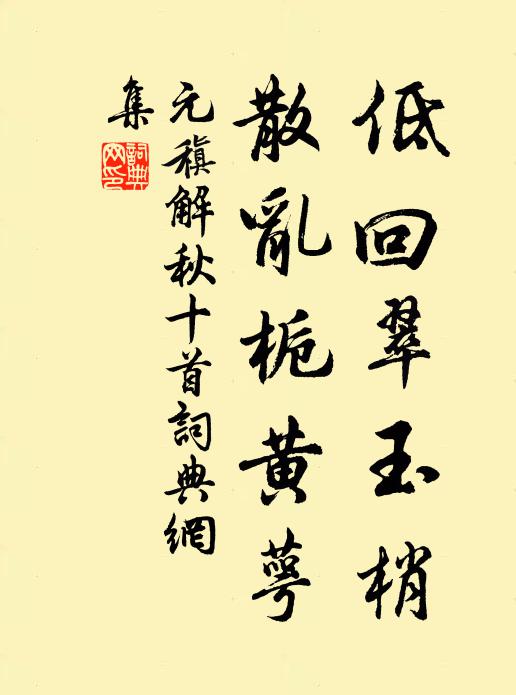 低回翠玉梢
散亂栀黄萼
元稹解秋十首詞典網
集
詞典
网印